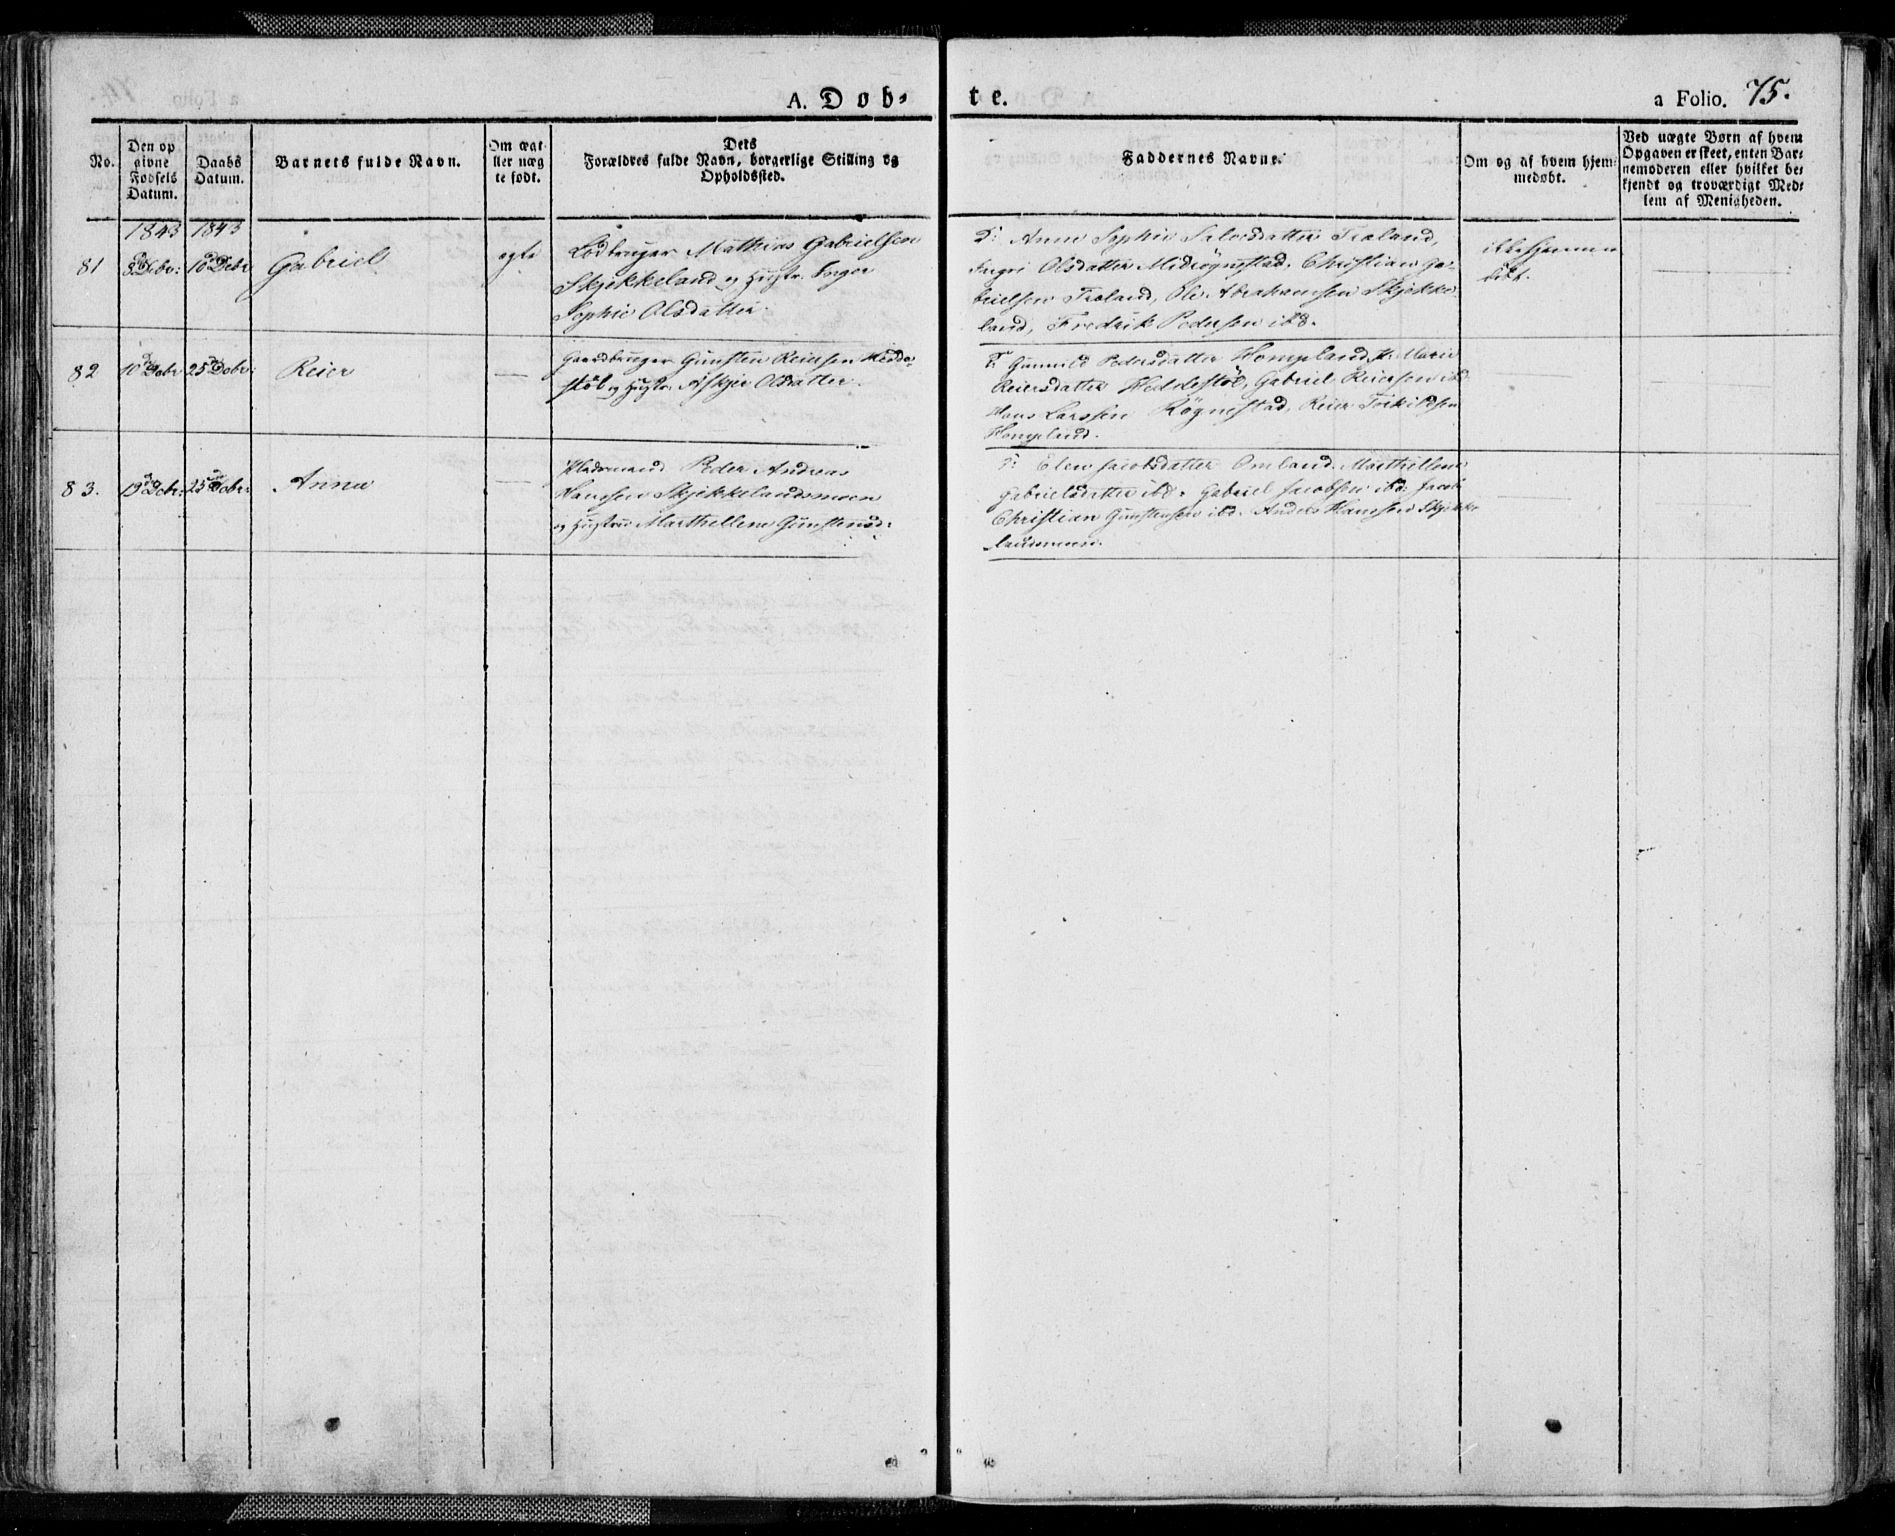 A. Døb-
te.
a Folio. 75.
No.
Den op
givne
Fødsels
Datum.
Daabs
Datum.
Barnets fulde Navn.
Om ægt
ller uæg
te født.
Dets
Forældres fulde Navn, borgerlige Stilling og
Opholdssted.
Faddernes Navne.
Om og af hvem hjem-
medøbt.
Ved uægte Børn af hvem
Opgaven er skeet, enten Bar-
nemoderen eller hvilket be-
kjendt og troværdigt Med-
lem af Menigheden.
1843
1843
81
8de Debr:
10de Debr
Gabriel
egte
Lodbruger Mathias Gabrielsen
Skjekkeland og Hustr. Inger
Sophie Olsdatter.
F: Anne Sophie Salvesdatter Træland,
Ingri Olsdatter Midrögnestad. Christian Ga-
brielsen Træland, Ole Abrahamsen Skjekke-
land, Fredrik Pedersen ibd.
ikke hjemme
döbt.
82
10de Debr
25de Debr:
Reier
—
Gaardbruger Gunsten Reiersen Hedde-
stöl og Hustr. Askjer Olsdatter.
F: Gunnild Pedersdatter Homeland, Marie
Reiersdatter Heddestöl, Gabriel Reiersen ibd.
Hans Larssen Rögnestad, Reier Torkildsen
Homeland.
83.
19de Debr:
25de Debr:
Anna
—
Pladsmand Peder Andreas
Hansen Skjekkelandsmoen
og Hustru Marthellene Gunstensd:
F: Elen Jacobsdatter Omland. Marthellene
Gabrielsdatter ibd. Gabriel Jacobsen ibd: Jacob
Christian Gunstensen ibd. Anders Hansen Skjekke
landsmoen.